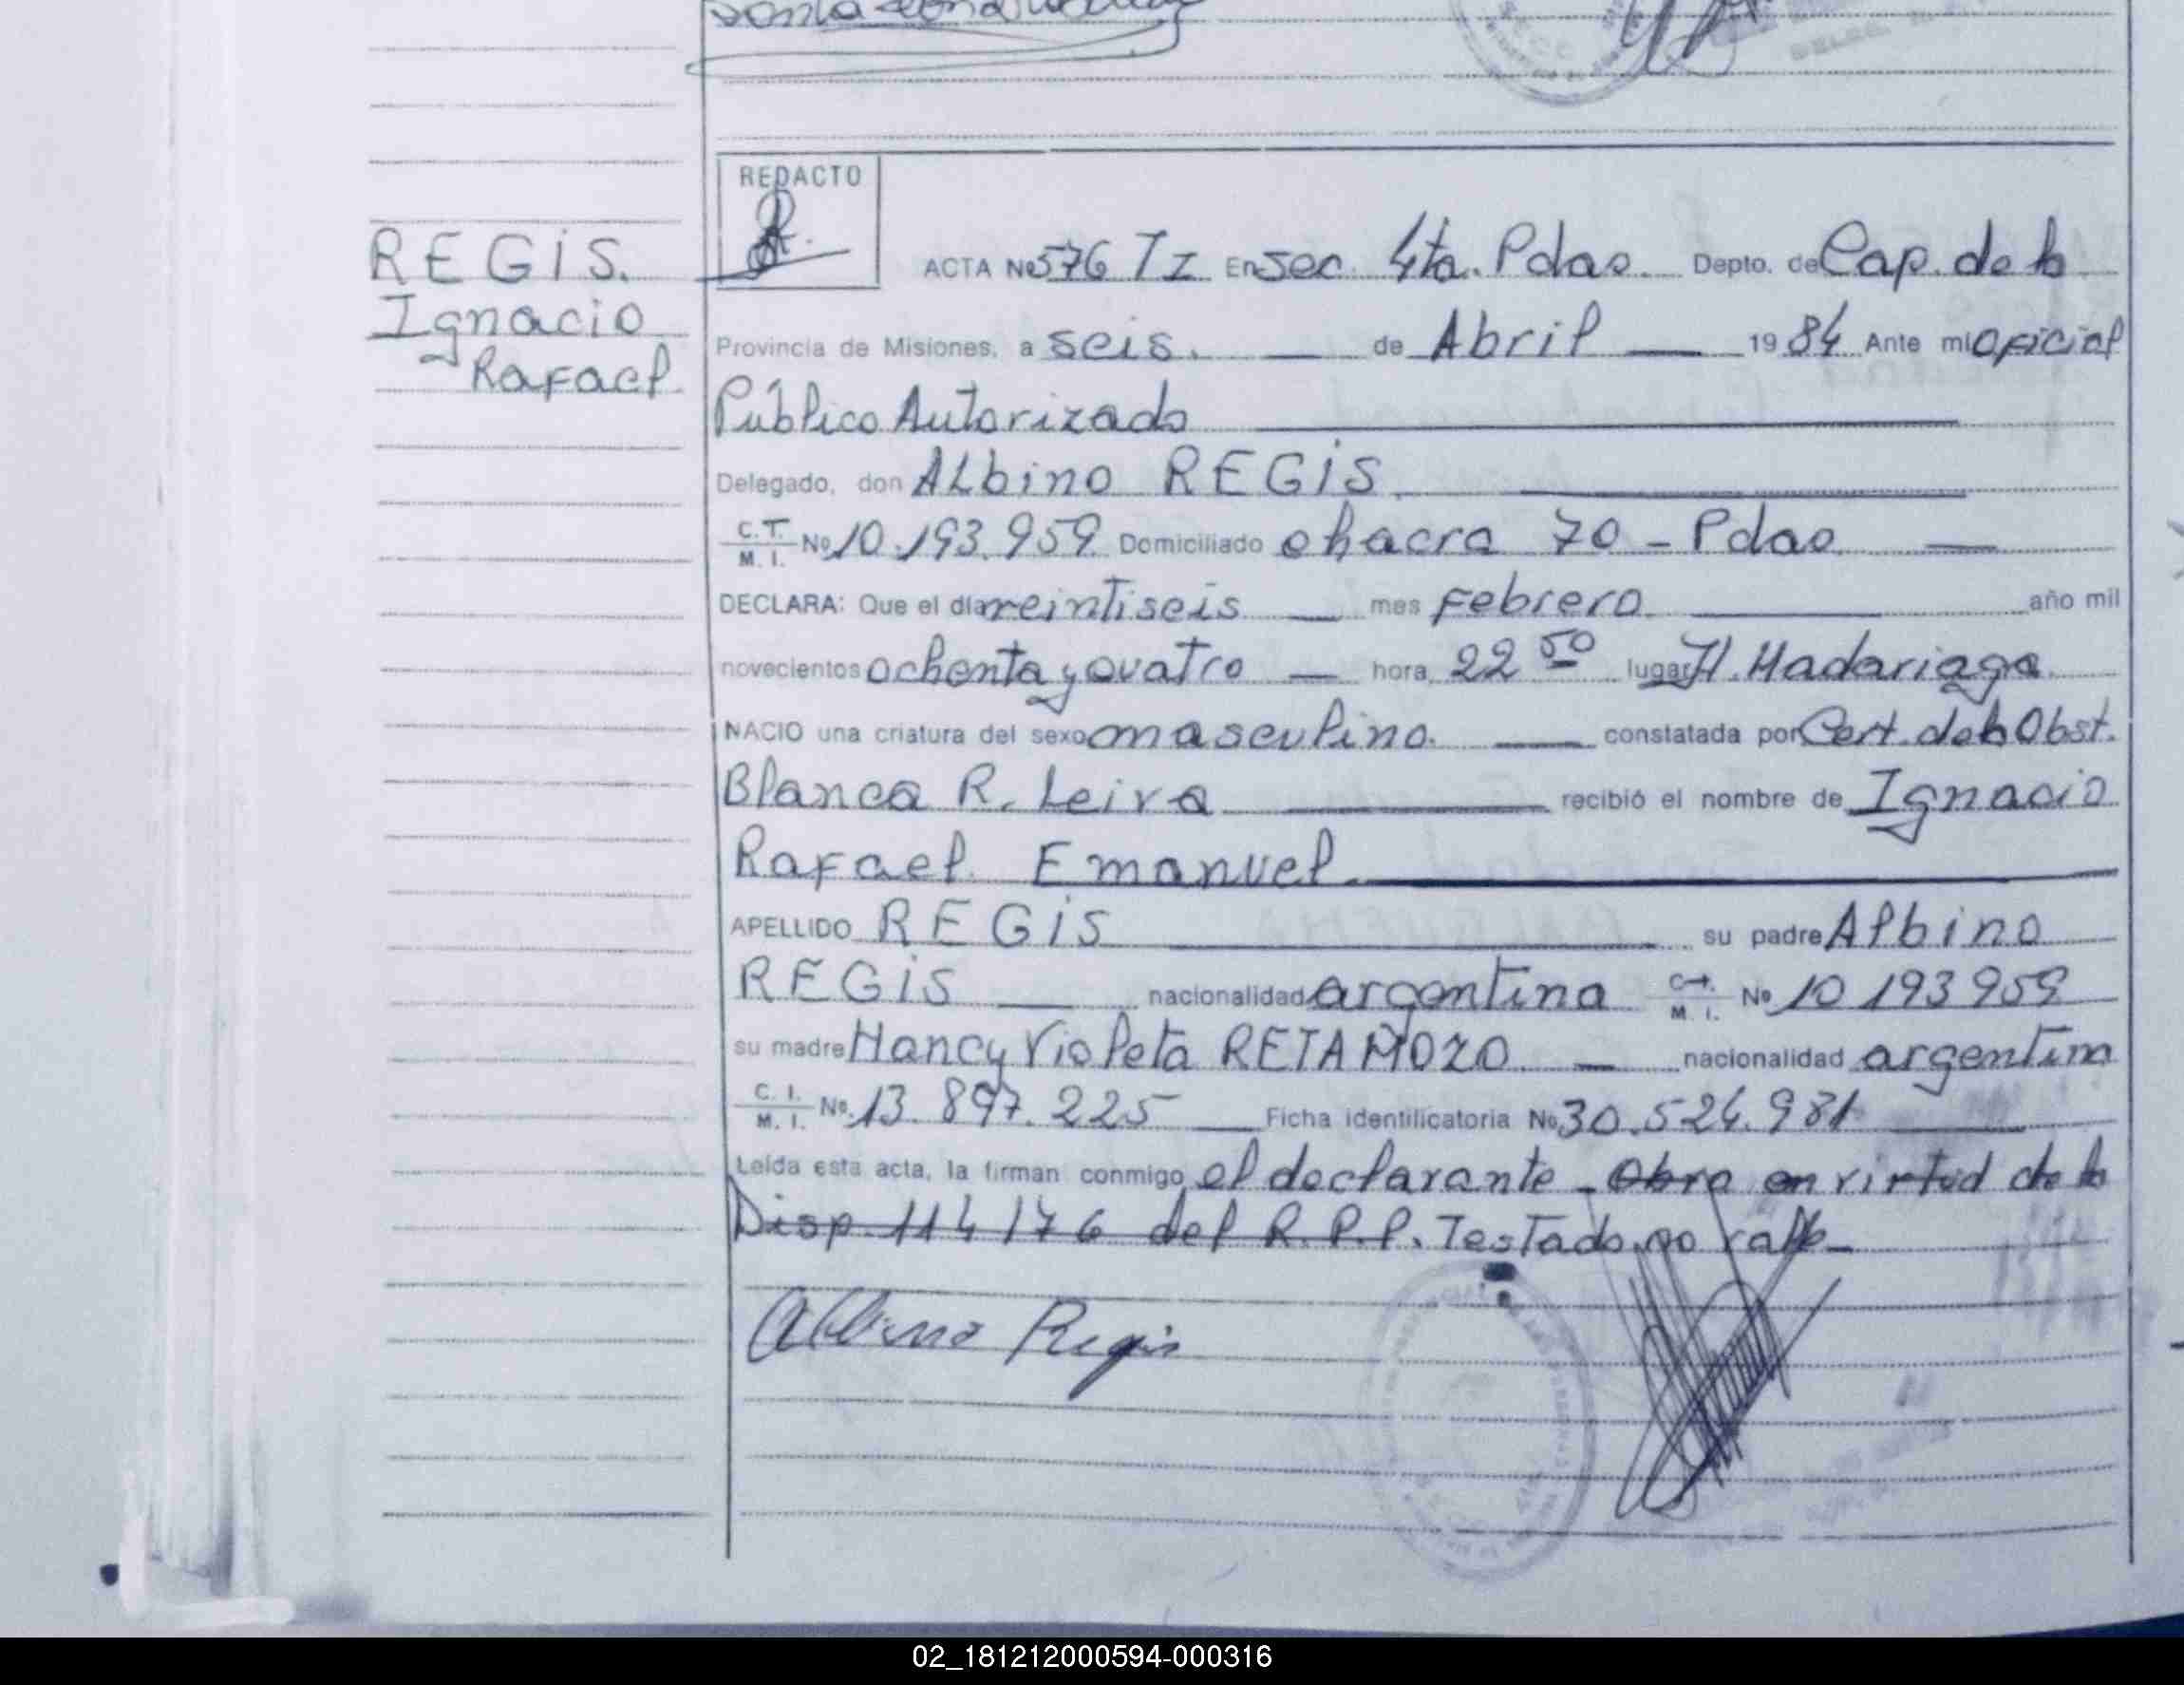 REGIS.
Ignacio
Rafael
REDACTO
ACTA No 576 T I En Sec. 4ta. Pdas. Depto. de Cap. de la
Provincia de Misiones, a seis. de Abril 19 84 Ante mi Oficial
Público Autorizado
Delegado, don Albino REGIS.
C.T. M. I. No 10.193.959 Domiciliado chacra 70 - Pdas
DECLARA: Que el día veintiseis mes Febrero año mil
novecientos ochenta y cuatro hora, 22 50 lugar H. Madariaga
NACIO una criatura del sexo masculino. constatada por Cert. de la Obst.
Blanca R. Leiva recibió el nombre de Ignacio
Rafael Emanuel
APELLIDO REGIS su padre Albino
REGIS nacionalidad argentina C.I. M. I. No 10 193 959
su madre Nancy Violeta RETAMOZO nacionalidad argentina
C. I. M. I. No. 13.897.225 Ficha identificatoria No 30.524.981
Leída esta acta, la firman conmigo el declarante - Obra en virtud de la
Disp. 114/76 del R.P.P. Testado, no vale -
Albino Regis
02_181212000594-000316